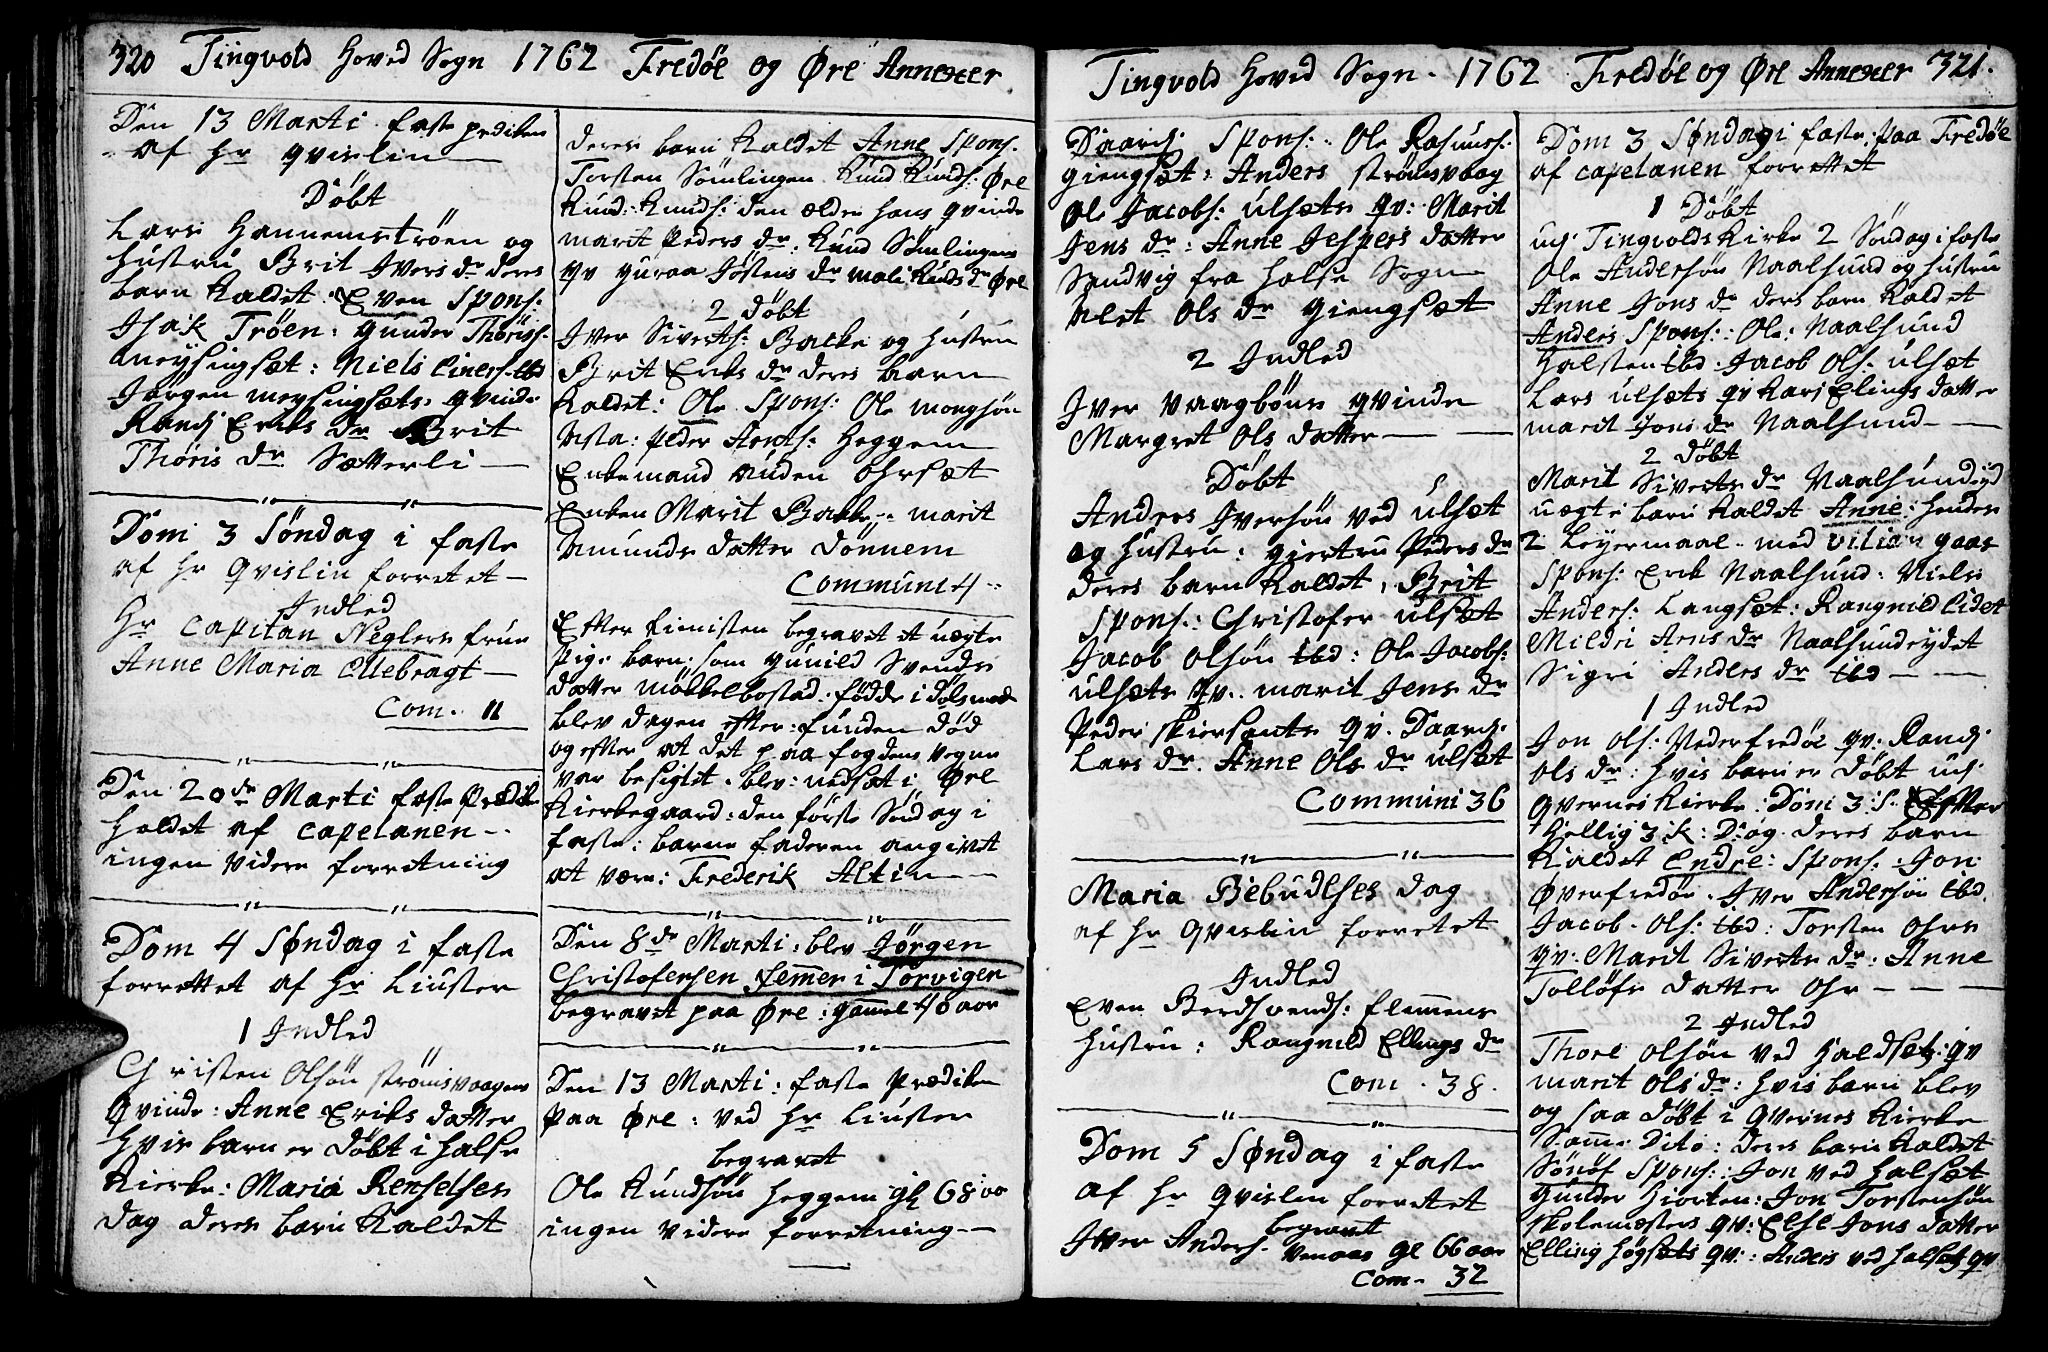 320 Tingvold Hoved Sogn 1762 Fredøe og Øre Annexer
Den 13 Marti faste prediken
af Hr Qvislin
Døbt
Lars Hannemstrøen og
Hustru Brit Ivers dr deres
barn Kaldet Even Spons:
Isak Trøen: Gunder Thoris:
Meysingsæt: Niels Einers: ibd
Jørgen Meysingsæts qvinde
Randj Eriks dr Brit
Thoris dr Sætterli
Dom 3 Søndag i faste
af Hr Qvislin forretet
Indled
Hr Capitan Neglers frue
Anne Maria Ellebragt
Com. 11
Den 20de Marti faste Prædik
holdet af Capelanen
ingen videre forretning
Dom 4 Søndag i faste
forrettet af Hr Liuster
1 Indled
Christen Olsøn strømsvaagens
Qvinde: Anne Eriks datter
Hvis barn er Døbt i Halse
Kierke: Maria Renselses
dag deres barn Kaldet
deres barn Kaldet Anne Spons.
Torsten Sømlingen Knud Knuds: Øre
Knud: Knuds: den ældre hans qvinde
marit Peders dr. Knud Sømlingens
qv guroe Jostens dr mali Knuds dr Øre
2 Døbt
Iver Siverts: Backe og Hustru
Brit Eriks dr deres barn
Kaldet: Ole Spons: Ole
Peder Arnts: Heggem
Enkemand Ohrsæt
Enken Marit Backe marit
Amunds datter Dønnem
Communi 4
Efter tienisten begravet et uægte
Pige barn: som gunild Svends
datter Møkkelbostad fødde i Dølsmaal
blev dagen efter: funden død
og efter at det paa fogdens vegne
var besigtet: blev: nedsæt i Øre
Kierkegaard: den første Søndag i
faste: barne faderen angivet
at være: Frederik Altin
Den 8de Marti: blev Jørgen
Christofersen Femer i Torvigen
begravet paa Øre: gamel 40 aar
Den 13 Marti: faste Prædiken
Paa Øre: ved Hr Liuster
begravet
Ole Knudsøn Heggem gl 68 aar
ingen videre forretning
Tingvold Hoved Sogn. 1762 Fredøe og Øre Annexer 321.
Daardj Spons: Ole Rasmus:
giengsæt: Anders strømsvaag
Ole Jacobs: ulsæts qv: Marit
Jens dr: Anne Jespers datter
Sandvig fra Halse Sogn
Alet Ols dr giengsæt
2 Indled
Iver Vaagbøns qvinde
Margret Ols datter
Døbt
Anders Iversøn ved ulsæt
og Hustru: giertru Peders dr
deres barn Kaldet. Brit
Spons: Christofer ulsæt
Jacob Olsøn ibd: Ole Jacobs:
ulsæts qv. marit Jens dr
Peder skiersants qv. Daardj.
Lars dr. Anne Ols dr ulsæt
Communi 36
Maria Bebudelses dag
af Hr Qvislin forretet
Indled
Even Berdsvends: Flemmens
Hustru: Rangnild Ellings dr
Com. 38.
Dom 5 Søndag i faste
af Hr Qvislin forretet
begravet
Iver Anders. gl 66 aar
Com. 32
Dom 3 Søndag i faste: paa Fredøe
af Capelanen forrettet
1 Døbt
udj Tingvolds Kirke 2 Søndag i faste
Ole Andersøn Naalsund og Hustru
Anne Jons dr ders barn Kaldet
Anders Spons: Ole: Naalsund
Halsten ibd: Jacob Ols: ulsæt
Lars ulsæts qv Karj Elings datter
marit Jons dr Naalsund
2 Døbt
Marit Siverts dr Naalsundeyd
uægte barn Kaldet Anne: hendes
2 Leyermaal. med Vilian gaas
Spons: Erik Naalsund: Niels
Anders: Langsæt: Rangnild Eidet
Mildri Arns dr Naalsundeydet
Sigri Anders dr ibd
1 Indled
Jon Ols: Nederfredøe qv. Randj.
Ols dr: Hvis barn er Døbt udj
Qvernes Kierke: Dom 3: S. Efter
Hellig 3: K: Dag. deres barn
Kaldet Endre: Spons: Jon
Øverfredøe. Iver Andersøn ibd.
Jacob. Ols: ibd: Torsten Ohrs
qv: Marit Siverts dr: Anne
Tolløfs datter Ohr
2 Indled
Thore Olsøn ved Haldsæt: qv
marit Ols dr: Hvis barn blev
og saa Døbt i Qvernes Kierke
Samme Dito: deres barn Kaldet
Sønøf Spons: Jon ved Halsæt
Gunder Hiorten: Jon Torstensøn
skolemesters qv: Else Jons datter
Elling Høgsæts qv: Anders ved Halsæt qv